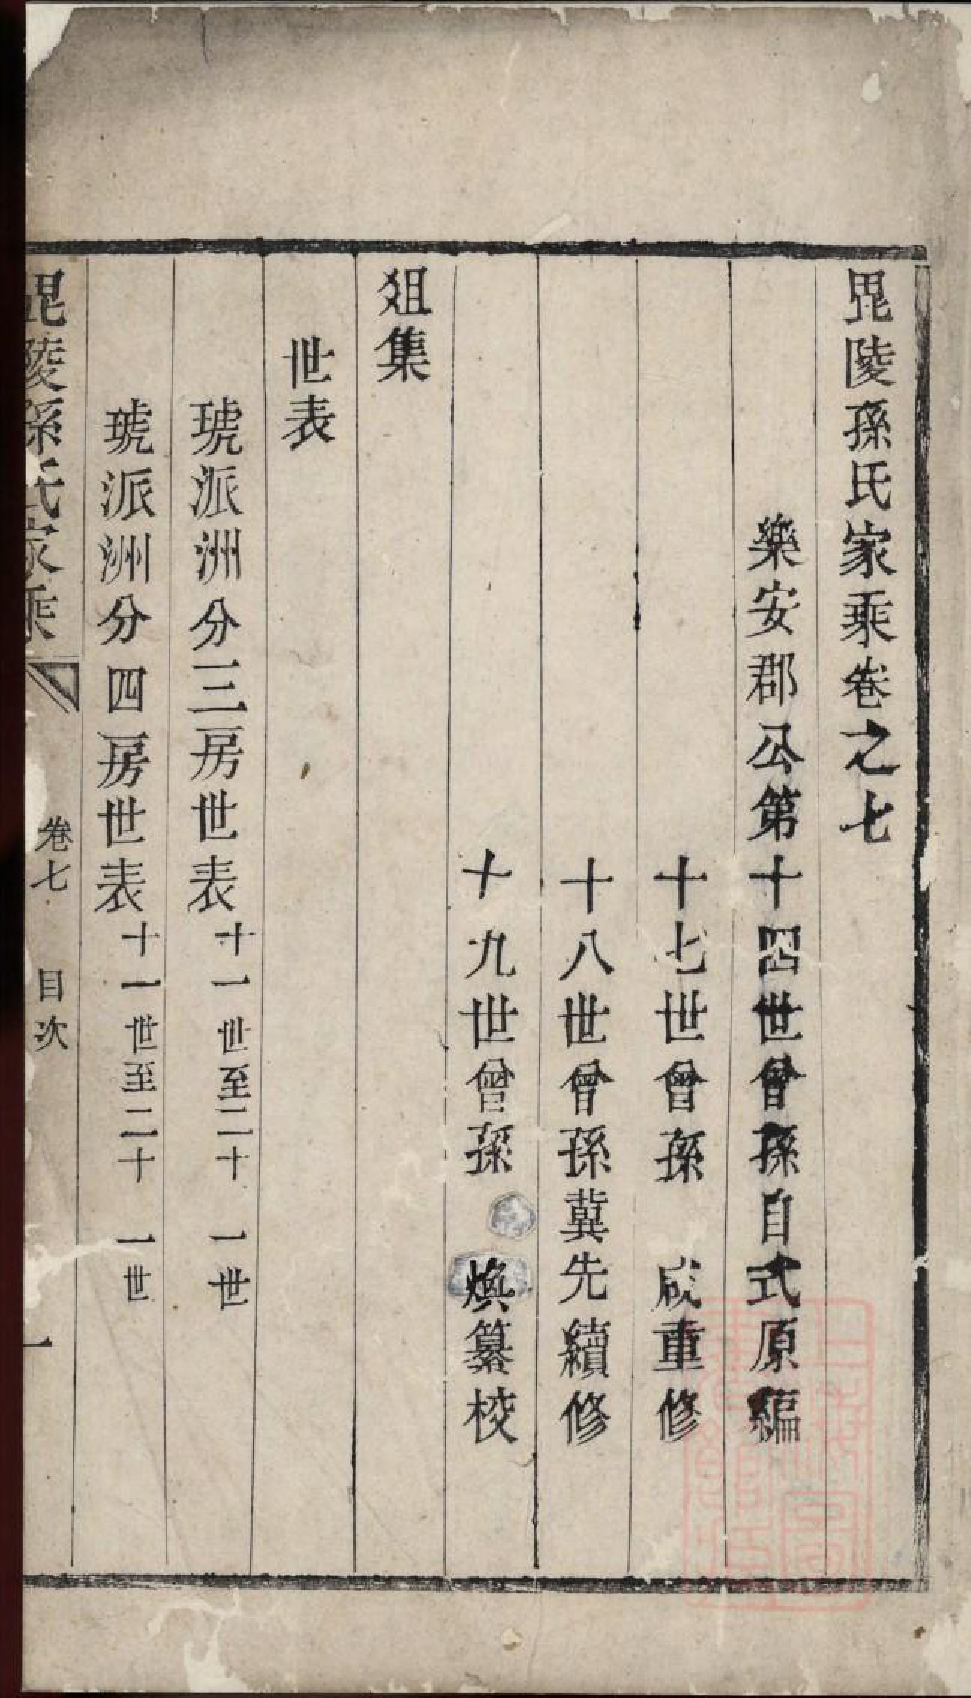 毘陵孫氏家乘卷之七
樂安郡公第十四世曾孫自式原編
十七世曾孫 咸重修
十八世曾孫冀先續修
十九世曾孫 煥纂校
爼集
世表
琥派洲分三房世表十一世至二十一世
琥派洲分四房世表十一世至二十一世
毘陵孫氏家乘 卷七 目次 一